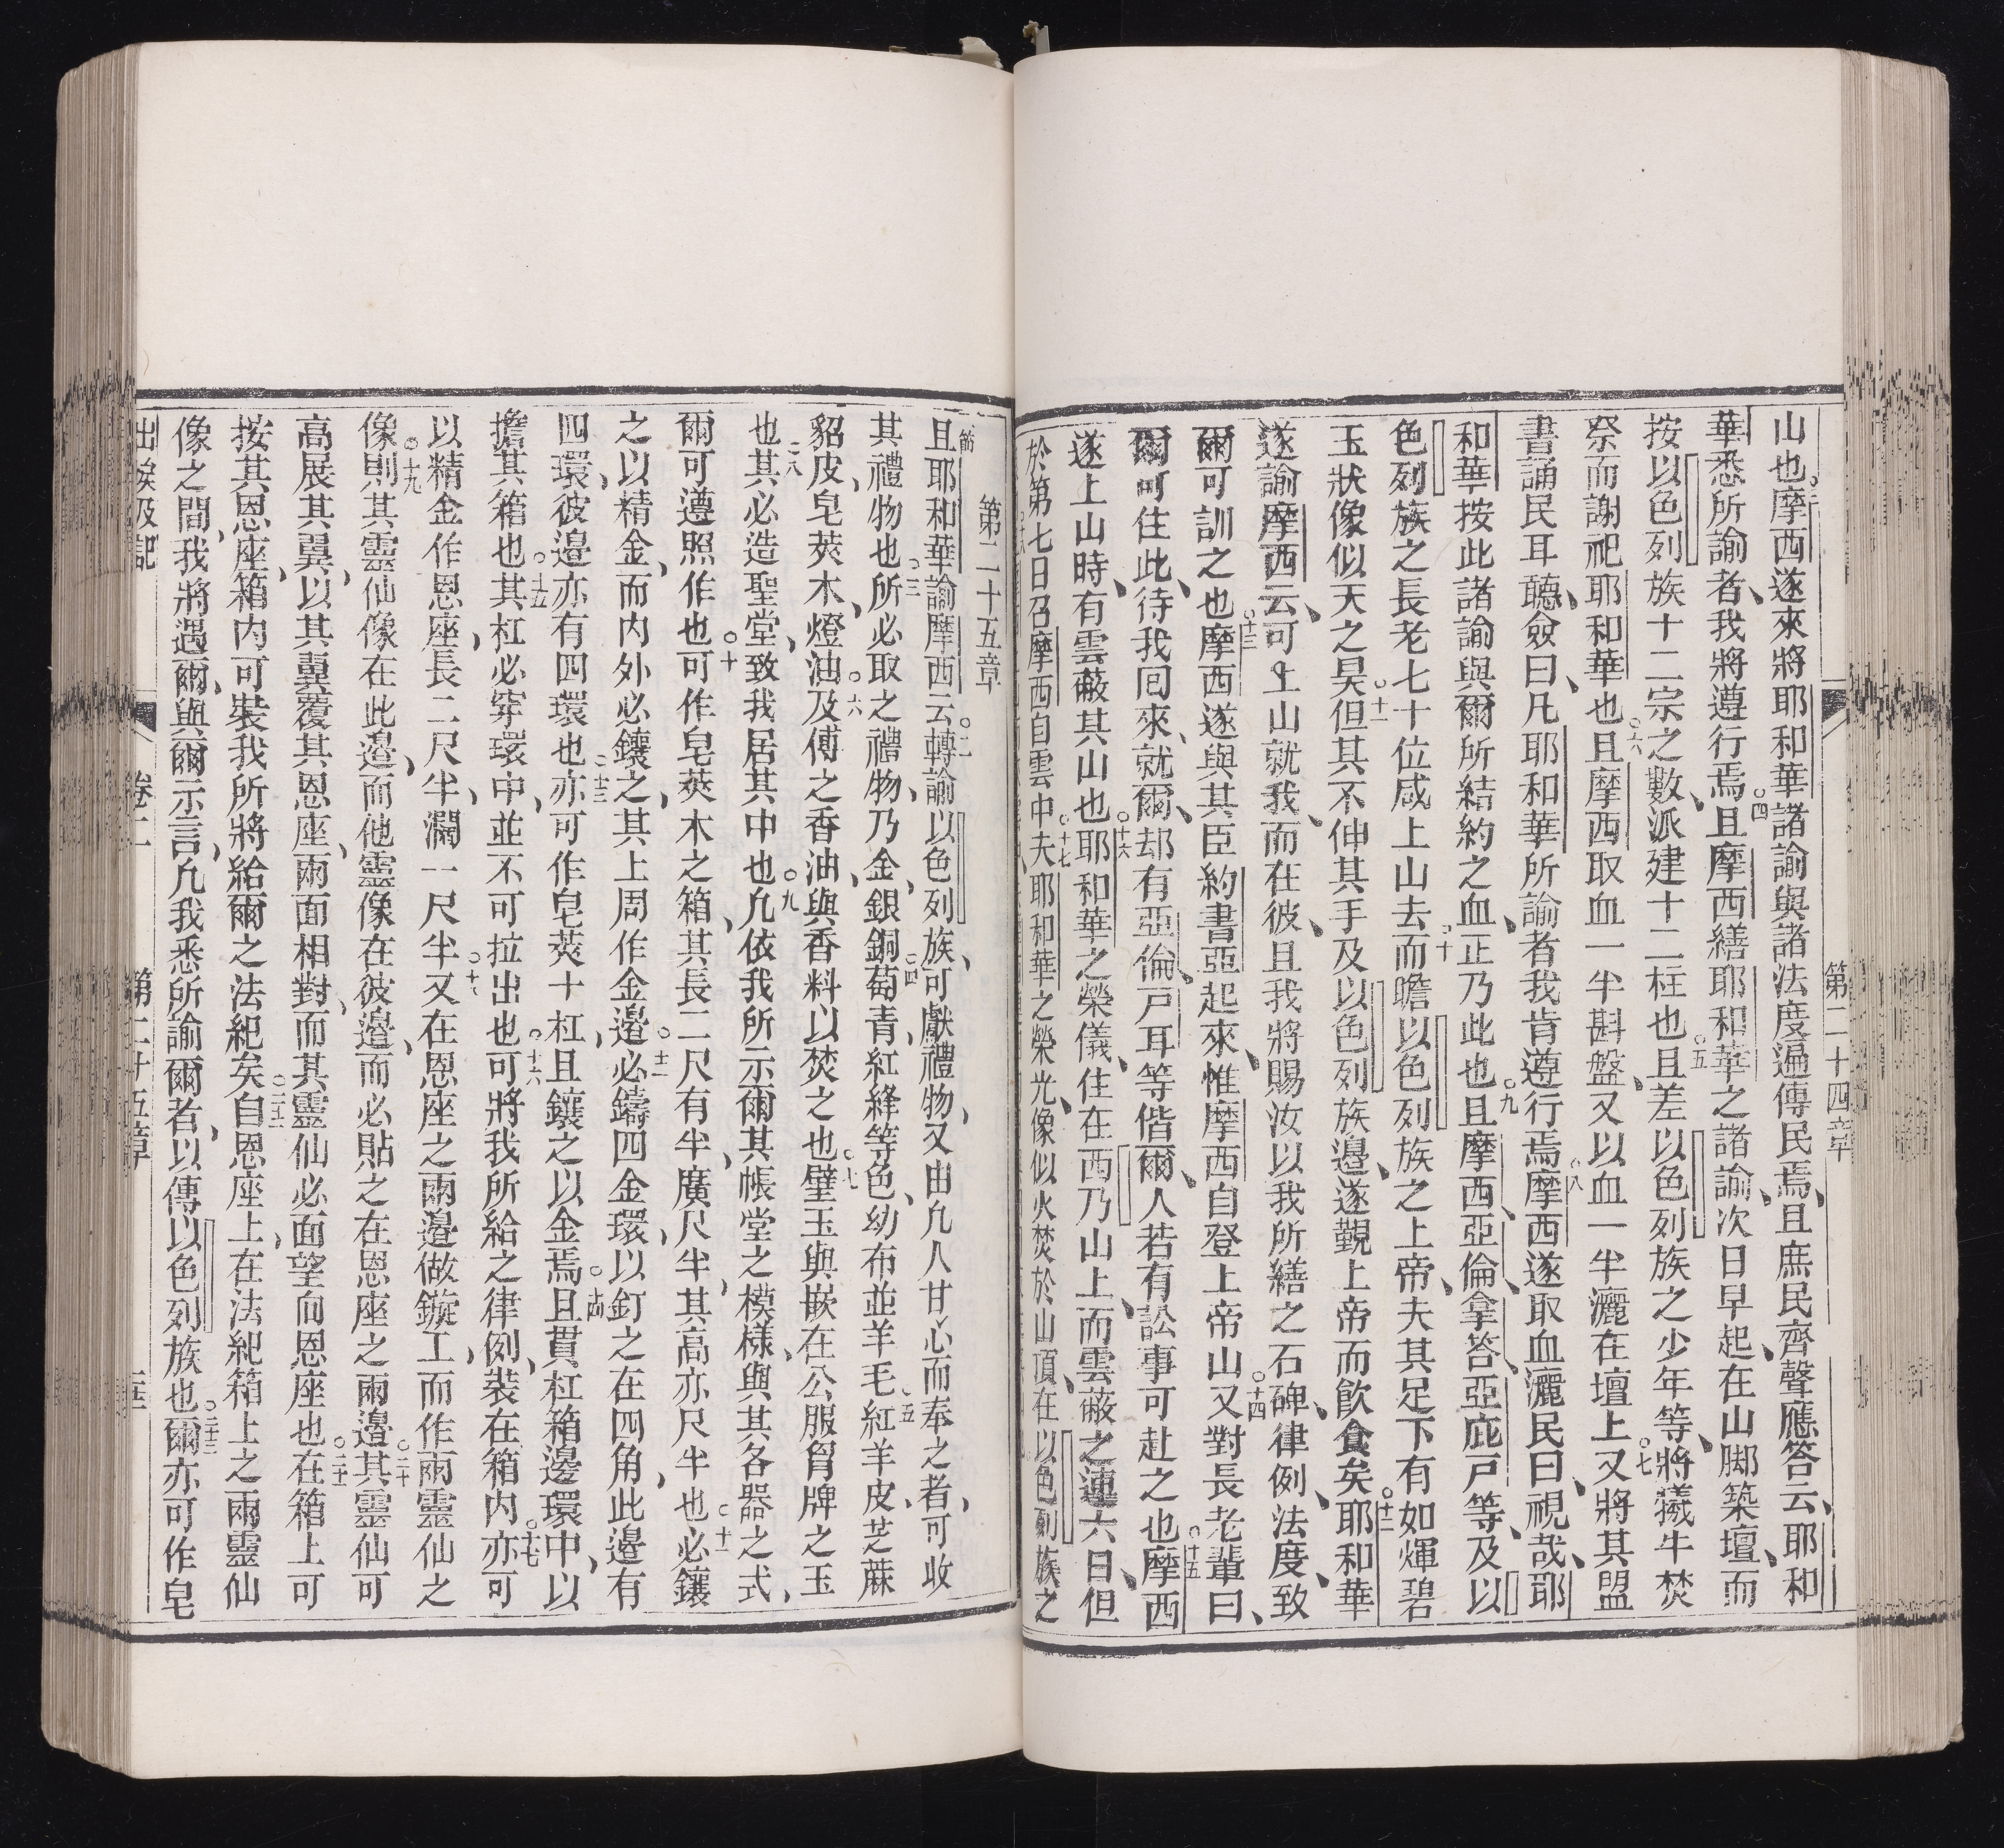 第二十四章
山也○三摩西遂來將耶和華諸諭與諸法度遍傳民焉、且庶民齊聲應答云、耶和
華悉所諭者、我將遵行焉○四且摩西繕耶和華之諸諭、次日早起、在山脚築壇、而
按以色列族十二宗之數、派建十二柱也○五且差以色列族之少年等、將犧牛焚
祭而謝祀耶和華也○六且摩西取血一半斟盤、又以血一半灑在壇上○七又將其盟
書誦民耳聽、僉曰、凡耶和華所諭者我肯遵行焉○八摩西遂取血灑民曰、視哉、耶
和華按此諸諭與爾所結約之血、正乃此也○九且摩西亞倫、拿答、亞庇戸等、及以
色列族之長老七十位咸上山去○十而瞻以色列族之上帝、夫其足下有如煇碧
玉狀像似天之昊○十一但其不伸其手及以色列族邊、遂觀上帝而飲食矣○十二耶和華
遂諭摩西云、可上山就我、而在彼、且我將賜汝以我所繕之石碑、律例、法度、致
爾可訓之也○十三摩西遂與其臣約書亞起來、惟摩西自登上帝山○十四又對長老輩曰、
爾可住此、待我回來、就爾、却有亞倫、戸耳等偕爾、人若有訟事可赴之也○十五摩西
遂上山時、有雲蔽其山也○十六耶和華之榮儀、住在西乃山上、而雲蔽之連六日、但
於第七日召摩西自雲中○十七夫耶和華之榮光、像似火焚於山頂、在以色列族之
第二十五章
節一且耶和華諭摩西云○二轉諭以色列族、可獻禮物、又由凡人甘心而奉之者、可收
其禮物也○三所必取之禮物、乃金、銀、銅○四葡青、紅絳等色、幼布並羊毛○五紅羊皮、芝蔴
貂皮、皂莢木○六燈油、及傅之香油、與香料以焚之也○七璧玉與嵌在公服胷牌之玉
也○八其必造聖堂、致我居其中也○九凡依我所示爾其帳堂之模樣、與其各器之式、
爾可遵照作也○十可作皂莢木之箱、其長二尺有半、廣尺半、其高亦尺半也○十一必鑲
之以精金、而内外必鑲之、其上周作金邊○十二必鑄四金環、以釘之在四角、此邊有
四環、彼邊亦有四環也○十三亦可作皂莢十杠、且鑲之以金焉○十四且貫杠箱邊環中、以
擔其箱也○十五其杠必穿環中、並不可拉出也○十六可將我所給之律例、裝在箱内○十七亦可
以精金作恩座、長二尺半、濶一尺半○十八又在恩座之兩邊做鏇工、而作兩靈仙之
像○十九則其靈仙像在此邊、而他靈像在彼邊、而必貼之在恩座之兩邊○二十其靈仙可
高展其翼、以其翼覆其恩座、兩面相對、而其靈仙必面望向恩座也○二十一在箱上可
按其恩座、箱内可裝我所將給爾之法紀矣○二十二自恩座上、在法紀箱上之兩靈仙
像之間、我將遇爾、與爾示言、凡我悉所諭爾者、以傳以色列族也○二十三爾亦可作皂
出埃及記 卷二 第二十五章